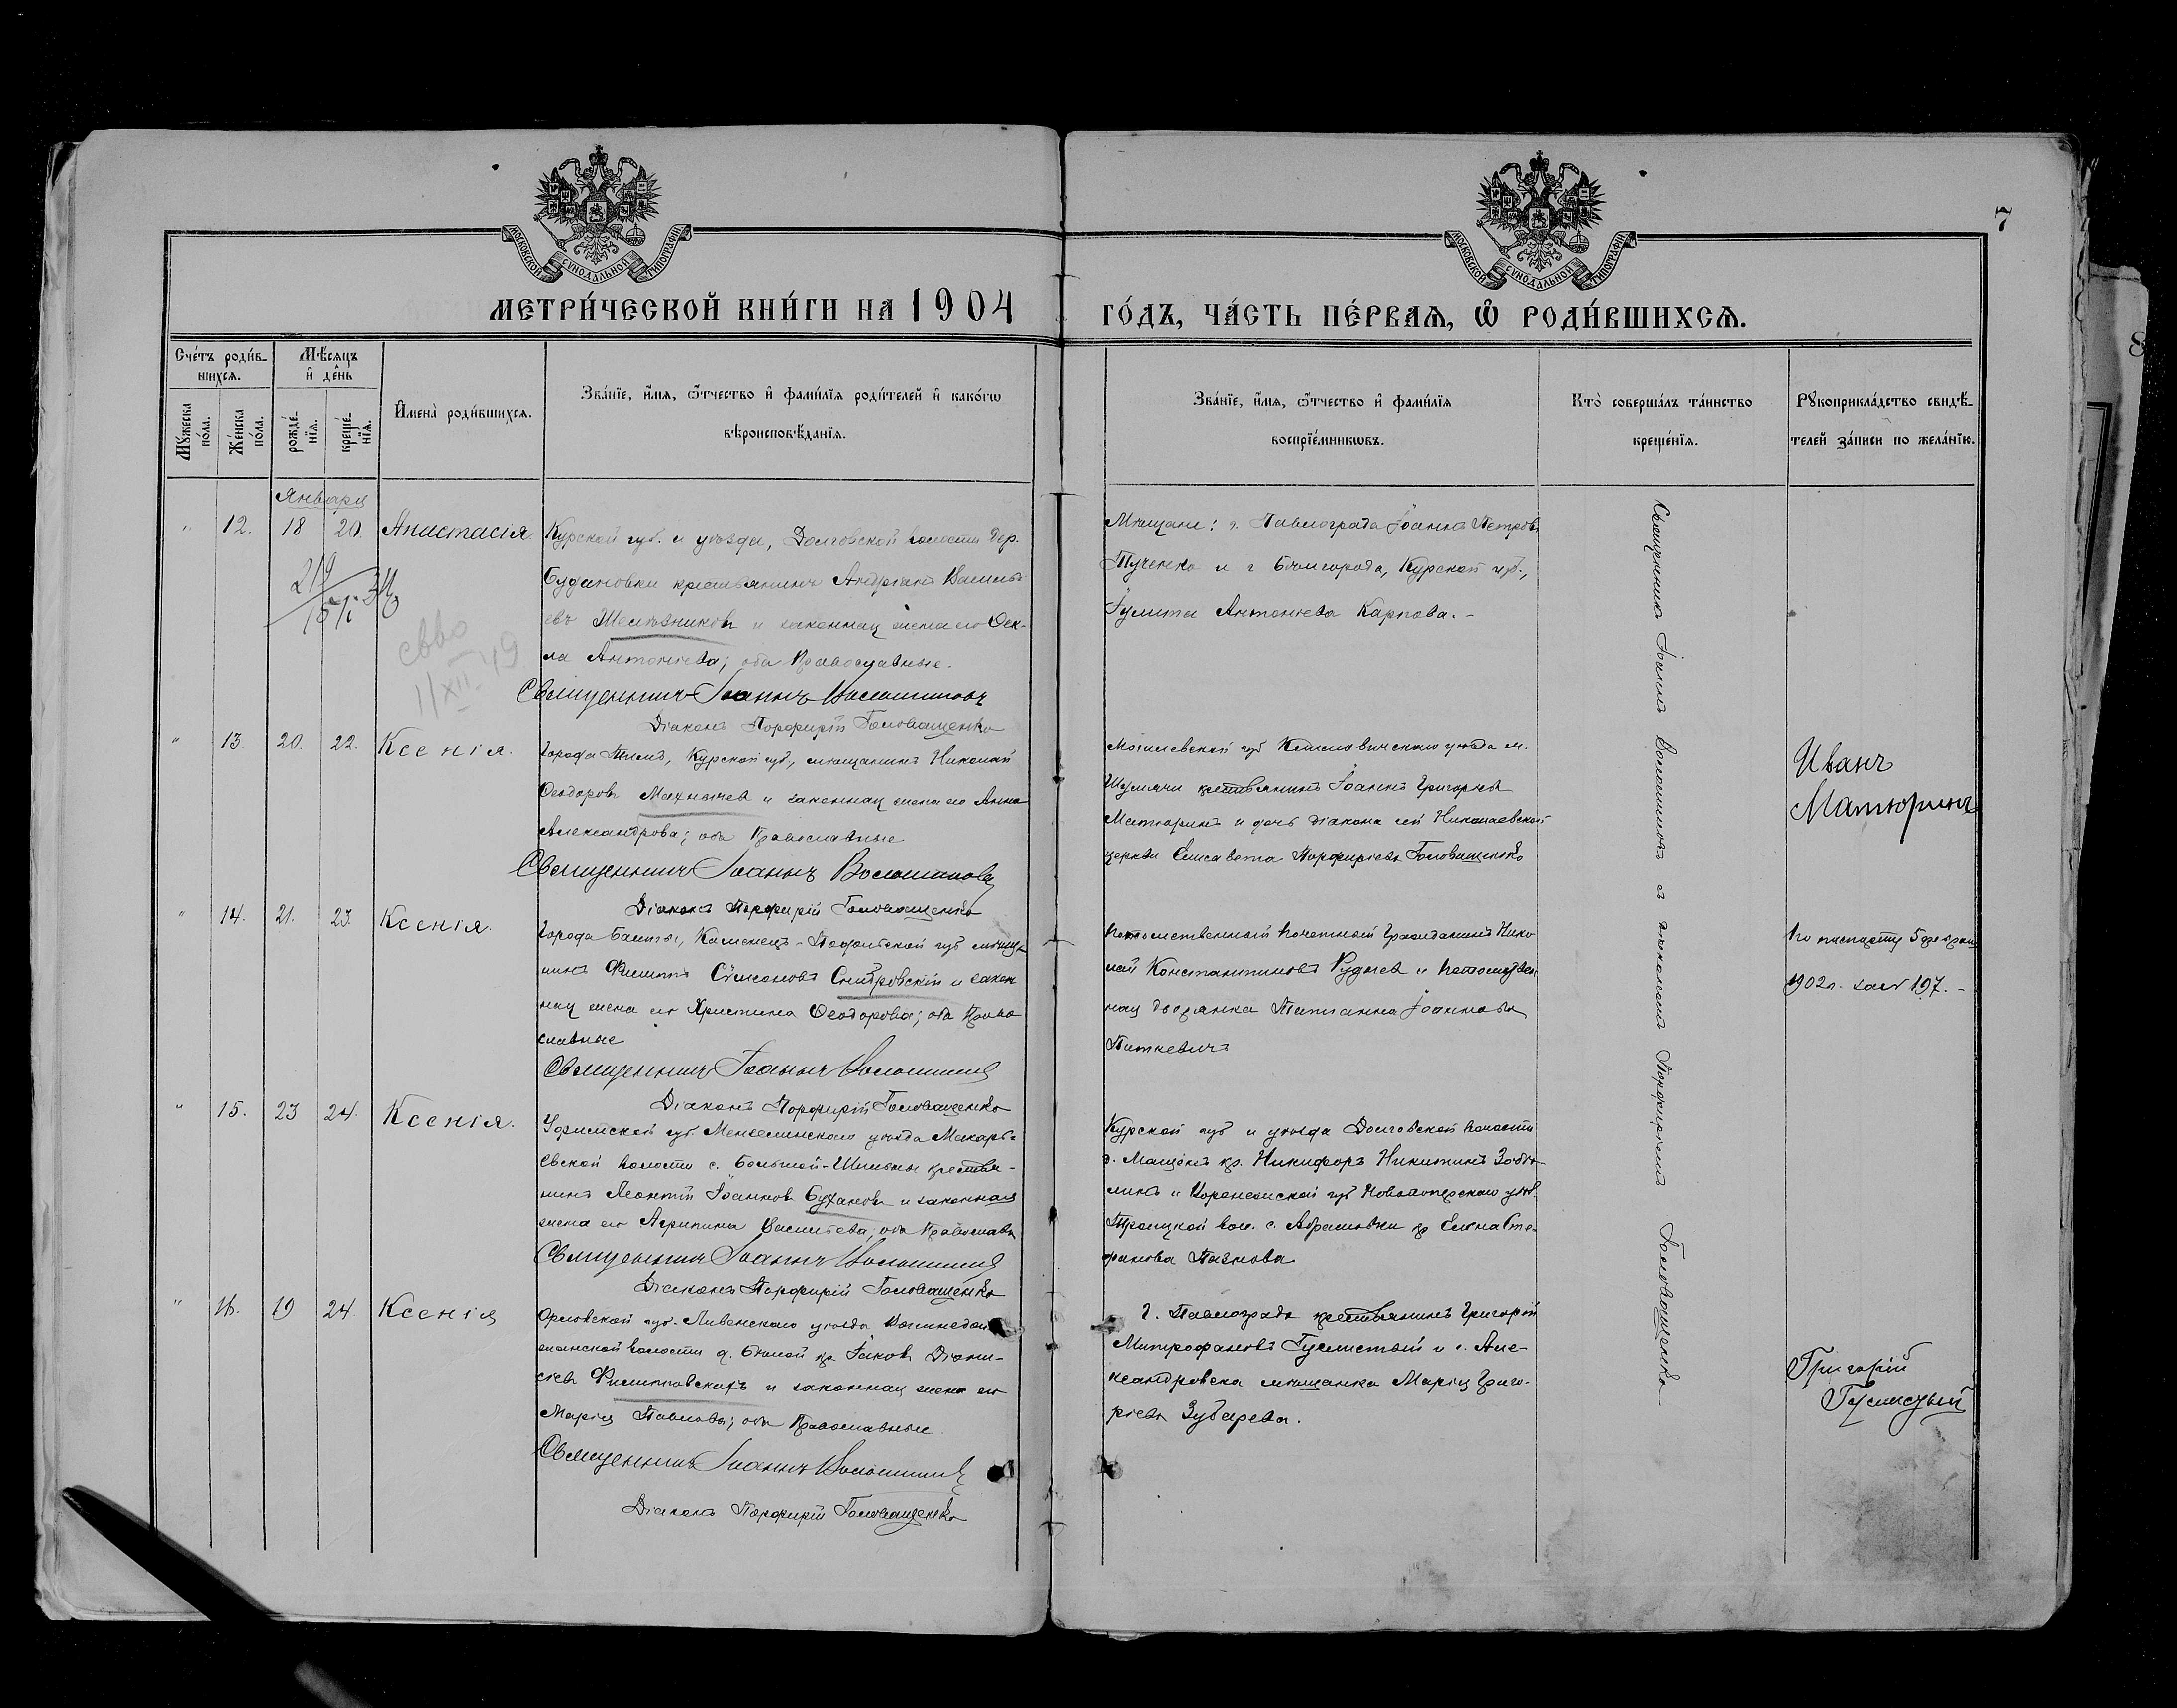 7
МОСКОВСКОЙ СѴНОДАЛЬНОЙ ТИПОГРАФІИ
МОСКОВСКОЙ СѴНОДАЛЬНОЙ ТИПОГРАФІИ
МЕТРИ́ЧЕСКОЙ КНИ́ГИ НА 1904
ГО́ДЪ, ЧА́СТЬ ПЕ́РВАѦ, Ѡ҆ РОДИ́ВШИХСѦ.
Сче́тъ роди́в-
шихсѧ.
Мꙋ́жеска
по́ла.
Же́нска
по́ла.
Мѣ́сѧцъ
и҆ де́нь
рожде́-
нїѧ.
креще́-
нїѧ.
И҆мена̀ роди́вшихсѧ.
Зва́нїе, и҆́мѧ, ѻ҆́тчество и҆ фами́лїѧ роди́телей и҆ како́гѡ
вѣроисповѣ́данїѧ.
Зва́нїе, и҆́мѧ, ѻ҆́тчество и҆ фами́лїѧ
воспрїе́мникѡвъ.
Кто̀ соверша́лъ та́инство
креще́нїѧ.
Рꙋкоприкла́дство свидѣ́-
телей за́писи по жела́нїю.
Января
" 12. 18 20. Анастасія.
Курской губ. и уѣзда, Долговской волости дер.
Будановки крестьянинъ Андріанъ Василь-
евъ и законная жена его Ѳек-
ла Антоніева; оба Православные.
Священникъ Іоаннъ Волошиновъ
Діаконъ Порфирій Головащенко
Мѣщане: г. Павлограда Іоаннъ Петровъ
Тученко и г. Бѣлгорода, Курской губ.,
Іулита Антоніева Карпова. -
" 13. 20. 22. Ксенія.
Города Тима, Курской губ., мѣщанинъ Николай
Ѳеодоровъ и законная жена его Анна
Александрова; оба Православные
Священникъ Іоаннъ Волошиновъ
Діаконъ Порфирій Головащенко
Могилевской губ. Климовичскаго уѣзда м.
Шумячи крестьянинъ Іоаннъ Григорьевъ
Матюринъ и дочь діакона сей Николаевской
церкви Елисавета Порфиріева Головащенко
Иванъ
Матюринъ
" 14. 21. 23. Ксенія.
Города Балты, Каменецъ-Подольской губ. мѣща-
нинъ Филиппъ Сѵмеоновъ и закон-
ная жена его Христина Ѳеодорова; оба Право-
славные
Священникъ Іоаннъ Волошиновъ
Діаконъ Порфирій Головащенко
Потомственный Почетный Гражданинъ Нико-
лай Константиновъ Рудневъ и потомствен-
ная дворянка Татіанна Іоаннова
Питкевичъ
По паспорту 5 февраля
1902 г. за № 197. -
" 15. 23 24. Ксенія.
Уфимской губ. Мензелинскаго уѣзда Макарь-
евской волости с. Большой-Шильны крестья-
нинъ Леонтій Іоанновъ Сухановъ и законная
жена его Агрипина Васильева; оба Православн.
Священникъ Іоаннъ Волошиновъ
Діаконъ Порфирій Головащенко
Курской губ. и уѣзда Долговской волости
кр. Никифоръ Никитинъ
и Воронежской губ. Новохоперскаго уѣзд.
Троицкой вол. с. Абрамовки кр. Елена Сте-
фанова
" 16. 19 24. Ксенія
Орловской губ. Ливенскаго уѣзда
волости д. Бѣлой кр. Іаковъ Діони-
сіевъ Филипповскихъ и законная жена его
Марія Павлова; оба Православные.
Священникъ Іоаннъ Волошиновъ
Діаконъ Порфирій Головащенко
Г. Павлограда крестьянинъ Григорій
Митрофановъ Гуслистый и г. Але-
ксандровска мѣщанка Марія Григо-
ріева Зубарева.
Григорій
Гуслистый
Священникъ Іоаннъ Волошиновъ съ діакономъ Порфиріемъ Головащенко
8